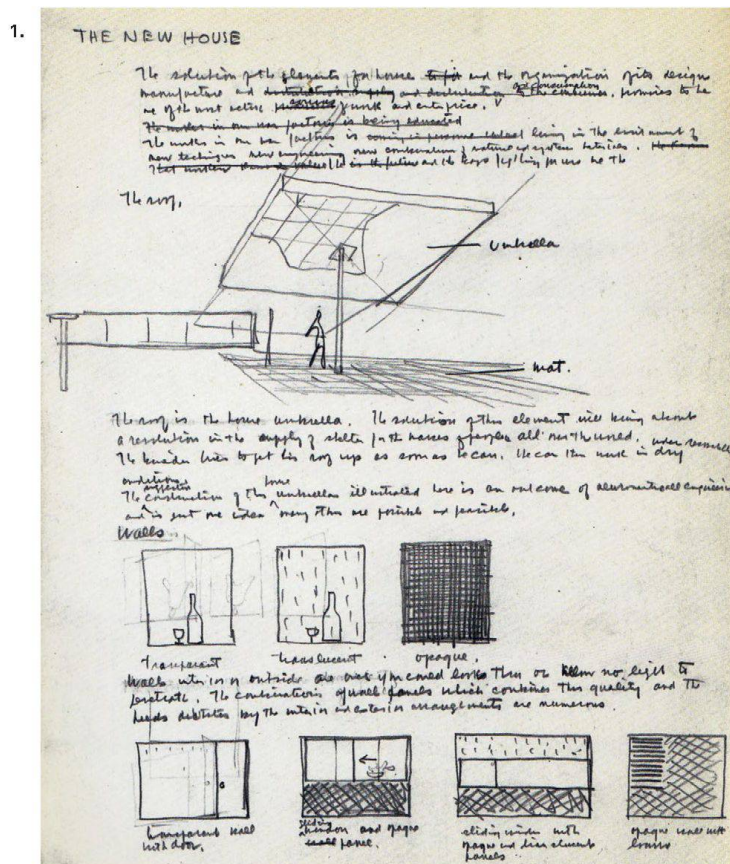 1.
THE NEW HOUSE
The solution of the elements for houses and the organization of its design
manufacture and distribution, supply and promises to be
one of the most active work and enterprise.
The worker in our war factories is being educated
The worker in our war factories is living in the environment of
new techniques new engineering new combination of materials and systems
The roof.
umbrella
mat.
The roof is the house umbrella. The solution of this element will bring about
a revolution in the supply of shelter for the masses of people all over the world.
The builder likes to get his roof up as soon as he can. He can then work in dry
under reasonable
conditions.
The construction of this house umbrella illustrated here is an outcome of aeronautical engineering
and is just one idea many others are possible and feasible.
Walls
transparent
translucent
opaque.
Walls interior or outside are ones you could look thru or allow no light to
penetrate. The combinations of wall panels which combines this quality and the
needs dictated by the interior or exterior arrangements are numerous.
transparent wall
with door.
sliding
window and opaque
wall panel.
sliding window with
opaque and translucent
panels
opaque wall with